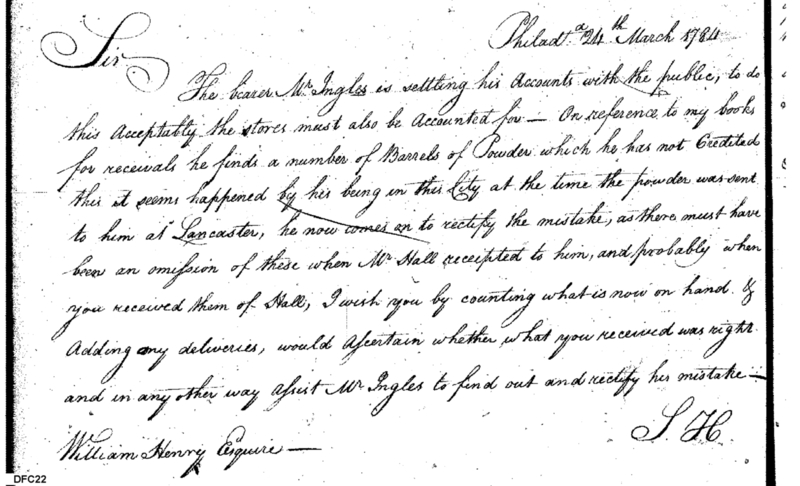 Philad.a 24th March 1784
Sir
The bearer Mr Ingles is settling his Accounts with the public, to do
this Acceptably the stores must also be Accounted for — On reference to my books
for receivals he finds a number of Barrels of Powder which he has not Credited
this it seems happened by his being in this City at the time the powder was sent
to him at Lancaster, he now comes on to rectify the mistake, as there must have
been an omission of these when Mr Hall receipted to him, and probably when
you received them of Hall, I wish you by counting what is now on hand &
Adding any deliveries, would Ascertain whether what you received was right
and in any other way Assist Mr Ingles to find out and rectify his mistake —
S. H.
William Henry Esquire —
_DFC22